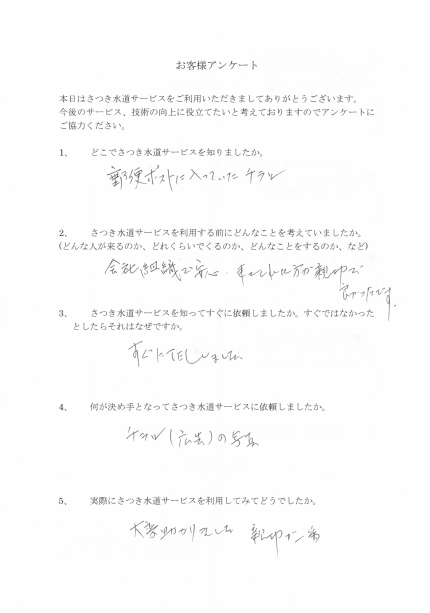 お客様アンケート
本日はさつき水道サービスをご利用いただきましてありがとうございます。
今後のサービス、技術の向上に役立てたいと考えておりますのでアンケートに
ご協力ください。
1、 どこでさつき水道サービスを知りましたか。
郵便ポストに入っていたチラシ
2、 さつき水道サービスを利用する前にどんなことを考えていましたか。
(どんな人が来るのか、どれくらいでくるのか、どんなことをするのか、など)
会社組織で安心.来てくれた方が親切で
良かったです。
3、 さつき水道サービスを知ってすぐに依頼しましたか。すぐではなかった
としたらそれはなぜですか。
すぐにTELしました
4、 何が決め手となってさつき水道サービスに依頼しましたか。
チラシ(広告)の写真
5、 実際にさつき水道サービスを利用してみてどうでしたか。
大変助かりました 親切